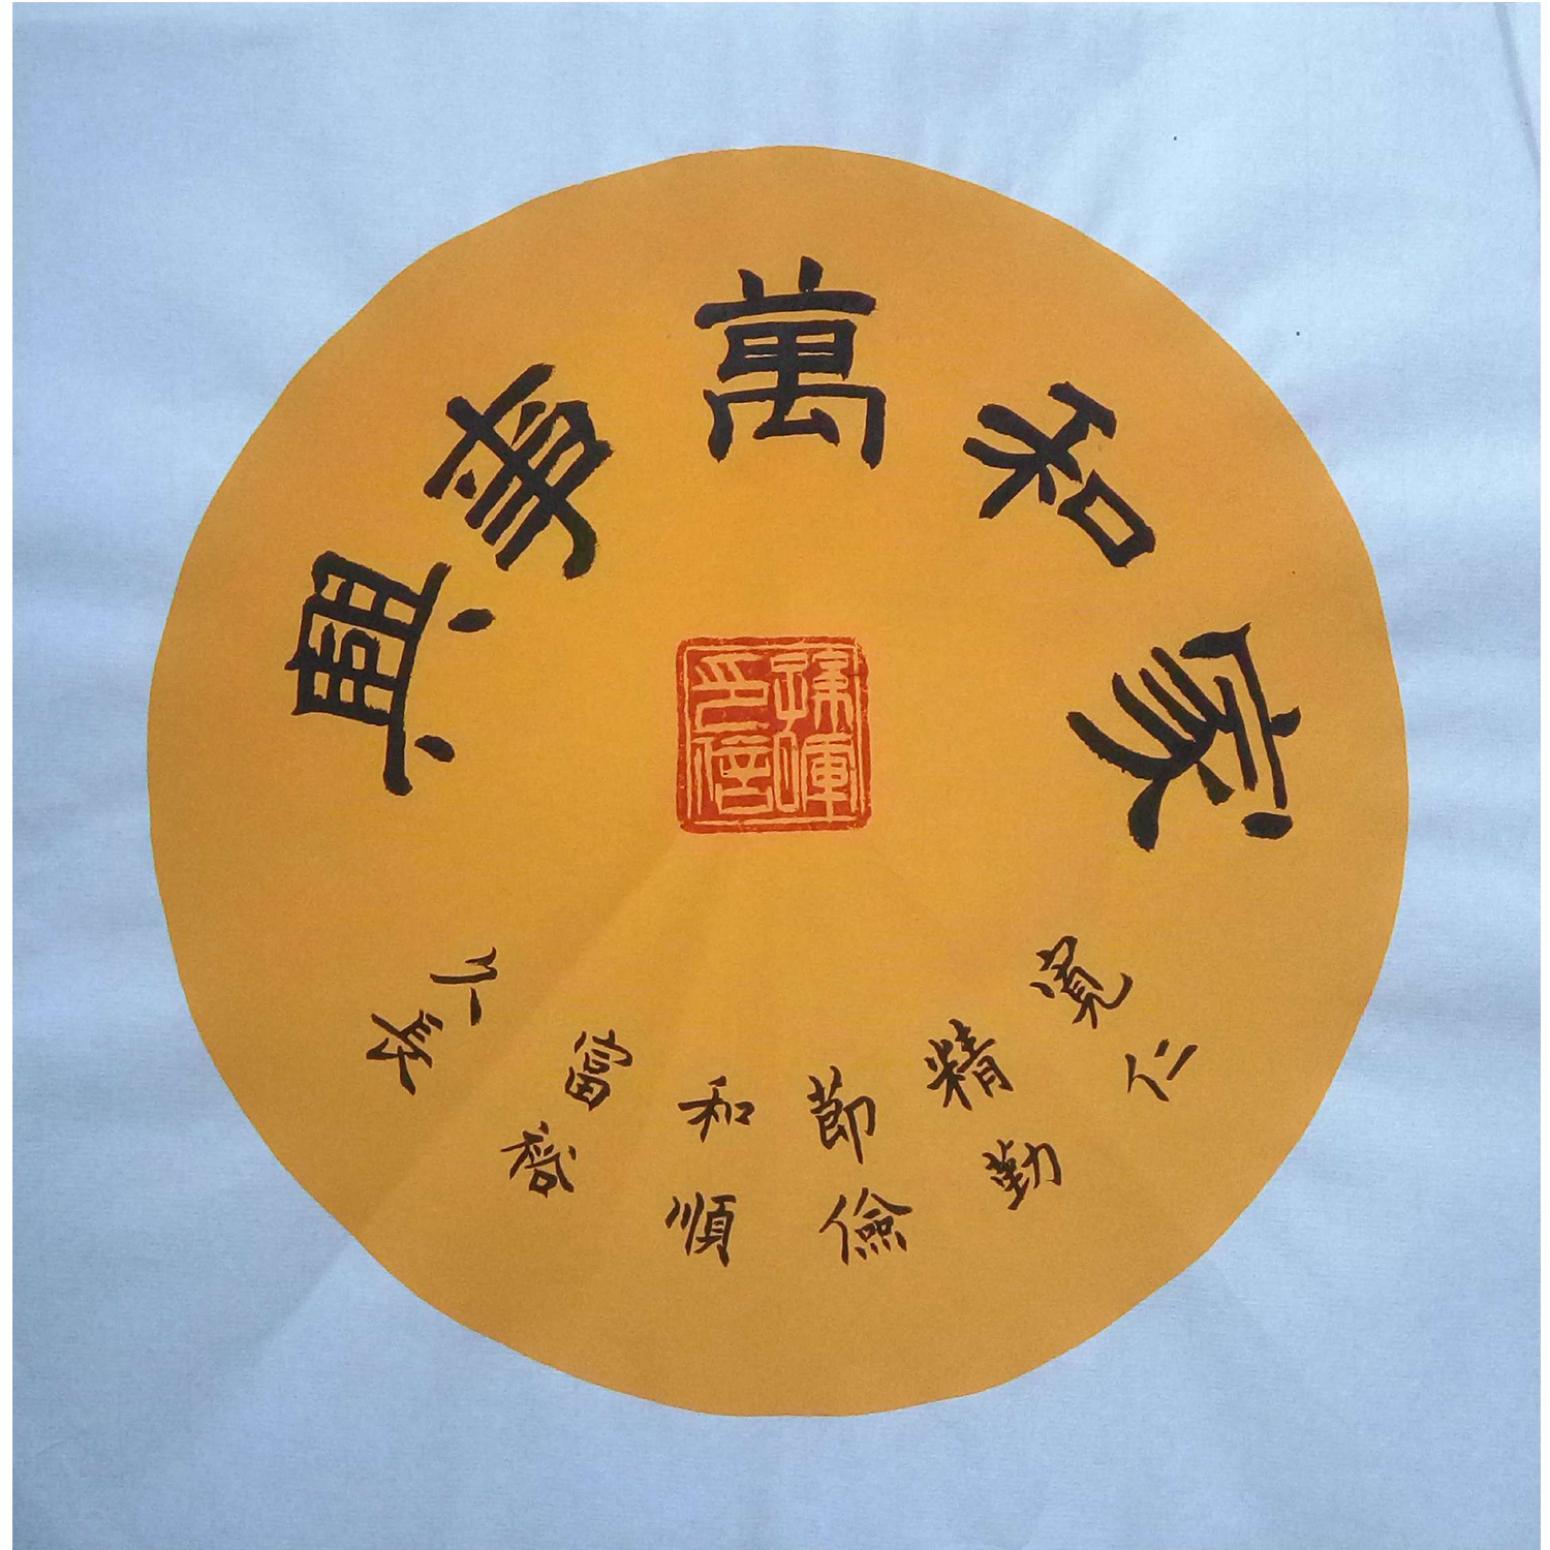 家和萬事興
寬仁
精勤
節儉
和順
富裕
久長
孫暉印信